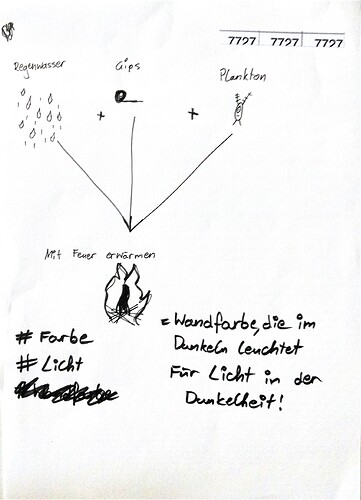 7797 7797 7797
Regenwasser Gips Plankton
+ +
Mit Feuer erwärmen
# Farbe
# Licht
= Wandfarbe, die im
Dunkeln leuchtet
Für Licht in der
Dunkelheit!